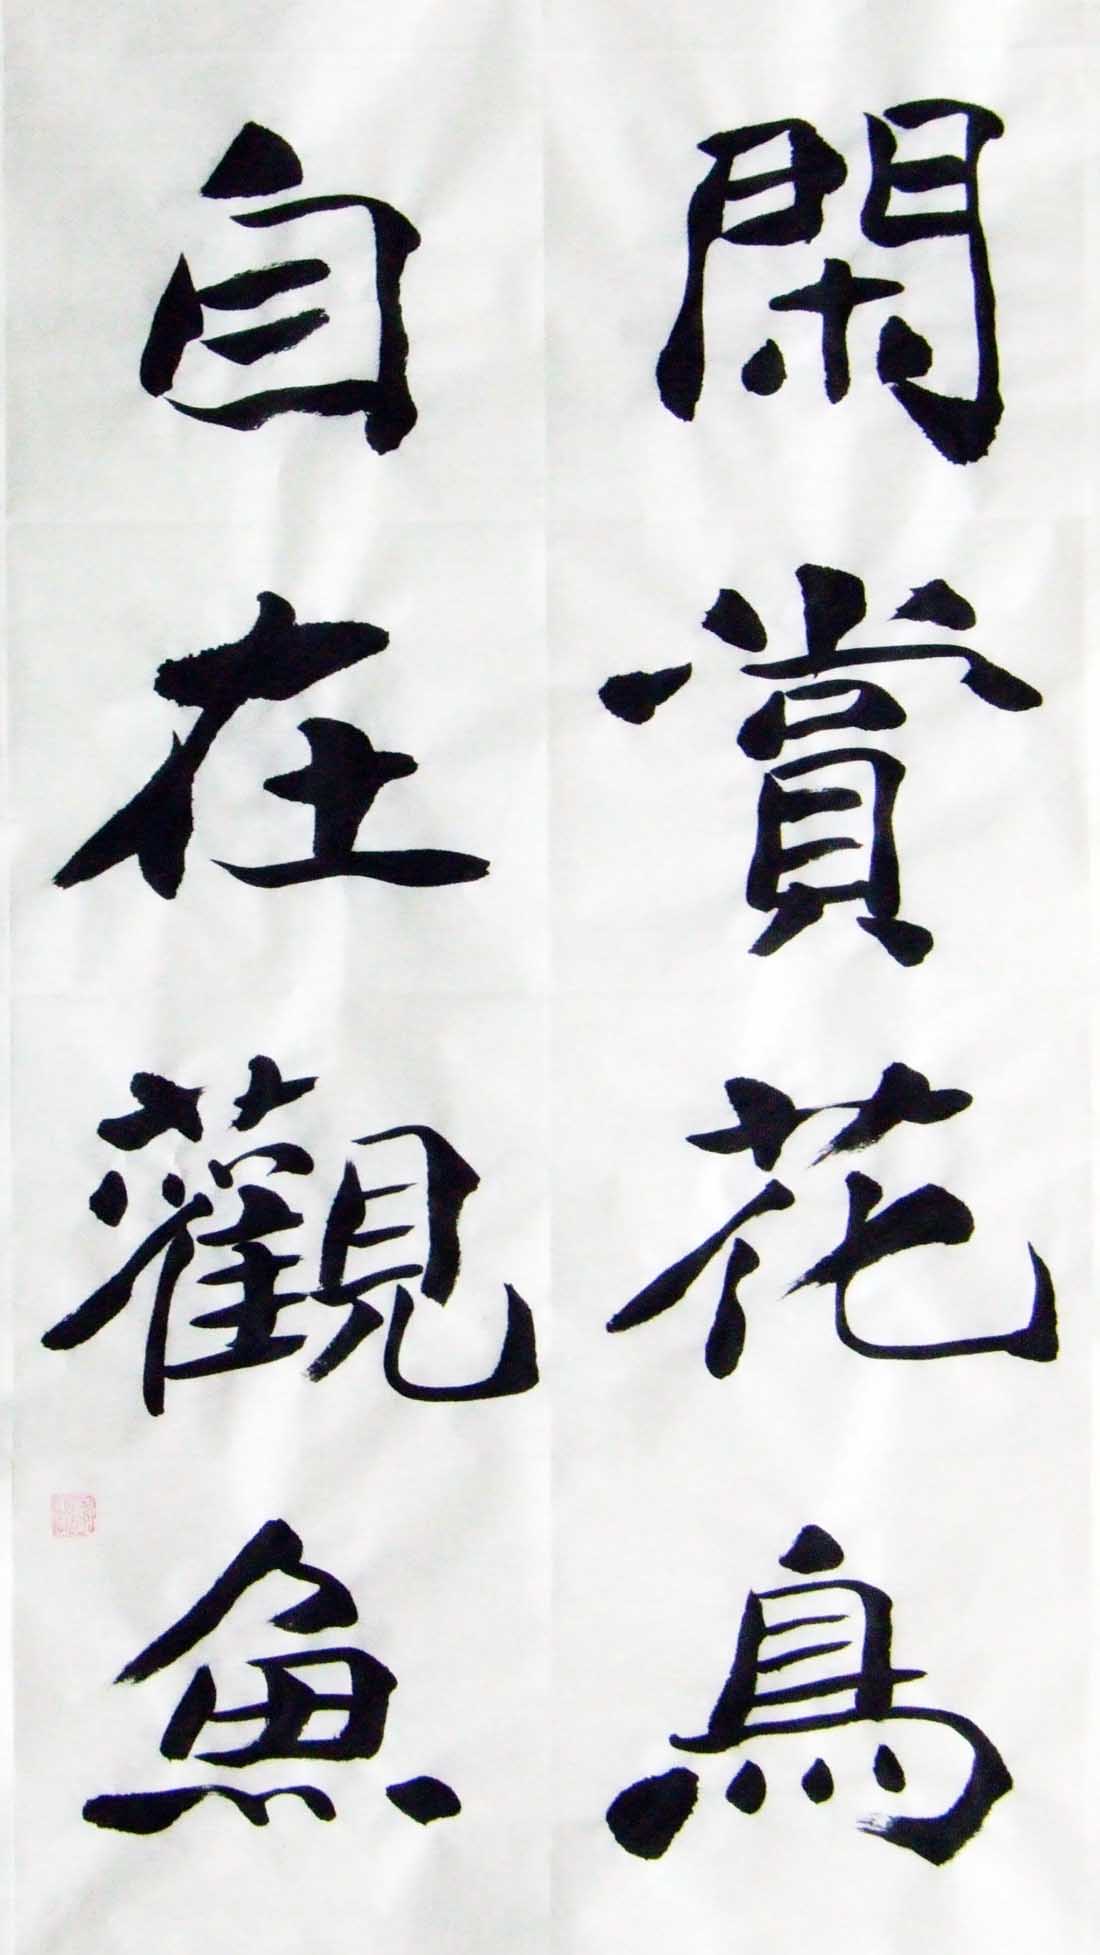 閑賞花鳥
自在觀魚